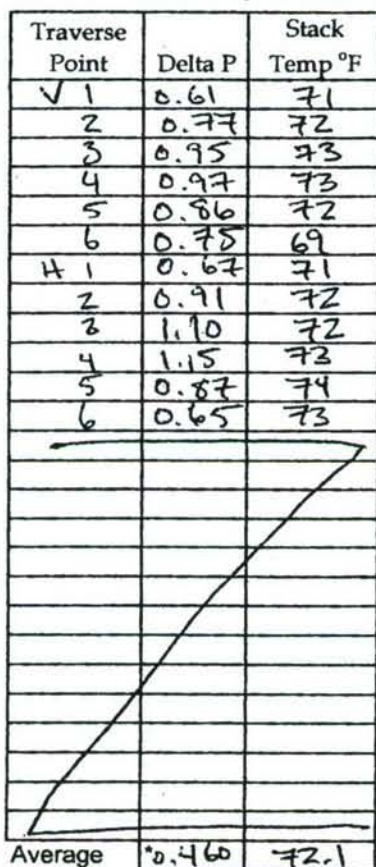 Traverse Point Delta P Stack Temp °F
V 1 0.61 71
2 0.77 72
3 0.95 73
4 0.97 73
5 0.86 72
6 0.75 69
H 1 0.67 71
2 0.91 72
3 1.10 72
4 1.15 73
5 0.87 74
6 0.65 73
Average *0.460 72.1